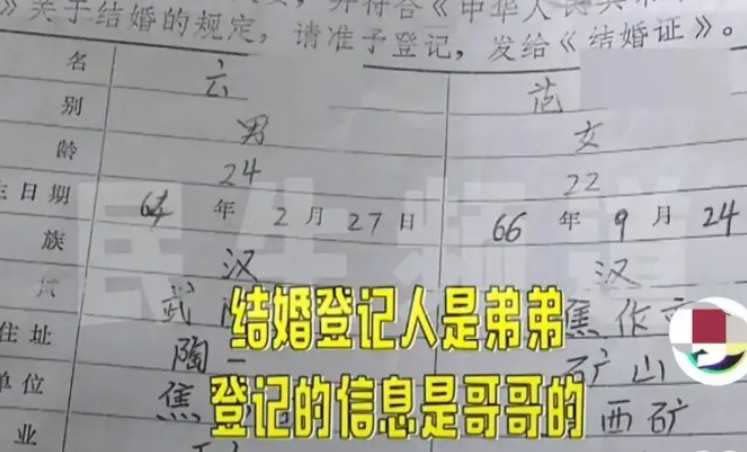 》关于结婚的规定，请准予登记，发给《结婚证》。
名 云 范
别 男 女
龄 24 22
生日期 64 年 2 月 27 日 66 年 9 月 24
族 汉 汉
武 焦作市
住址 陶 矿山
单位 焦 西矿
业
民生频道
结婚登记人是弟弟
登记的信息是哥哥的